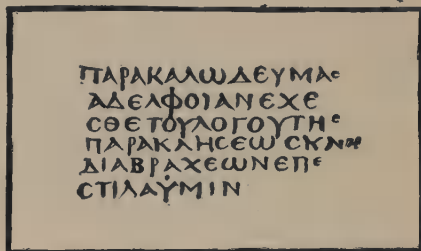 ΠΑΡΑΚΑΛΩΔΕΥΜΑC
ΑΔΕΛΦΟΙΑΝΕΧΕ
CΘΕΤΟΥΛΟΓΟΥΤΗC
ΠΑΡΑΚΛΗCΕΩC
ΔΙΑΒΡΑΧΕΩΝΕΠΕ
CΤΙΛΑΫΜΙΝ